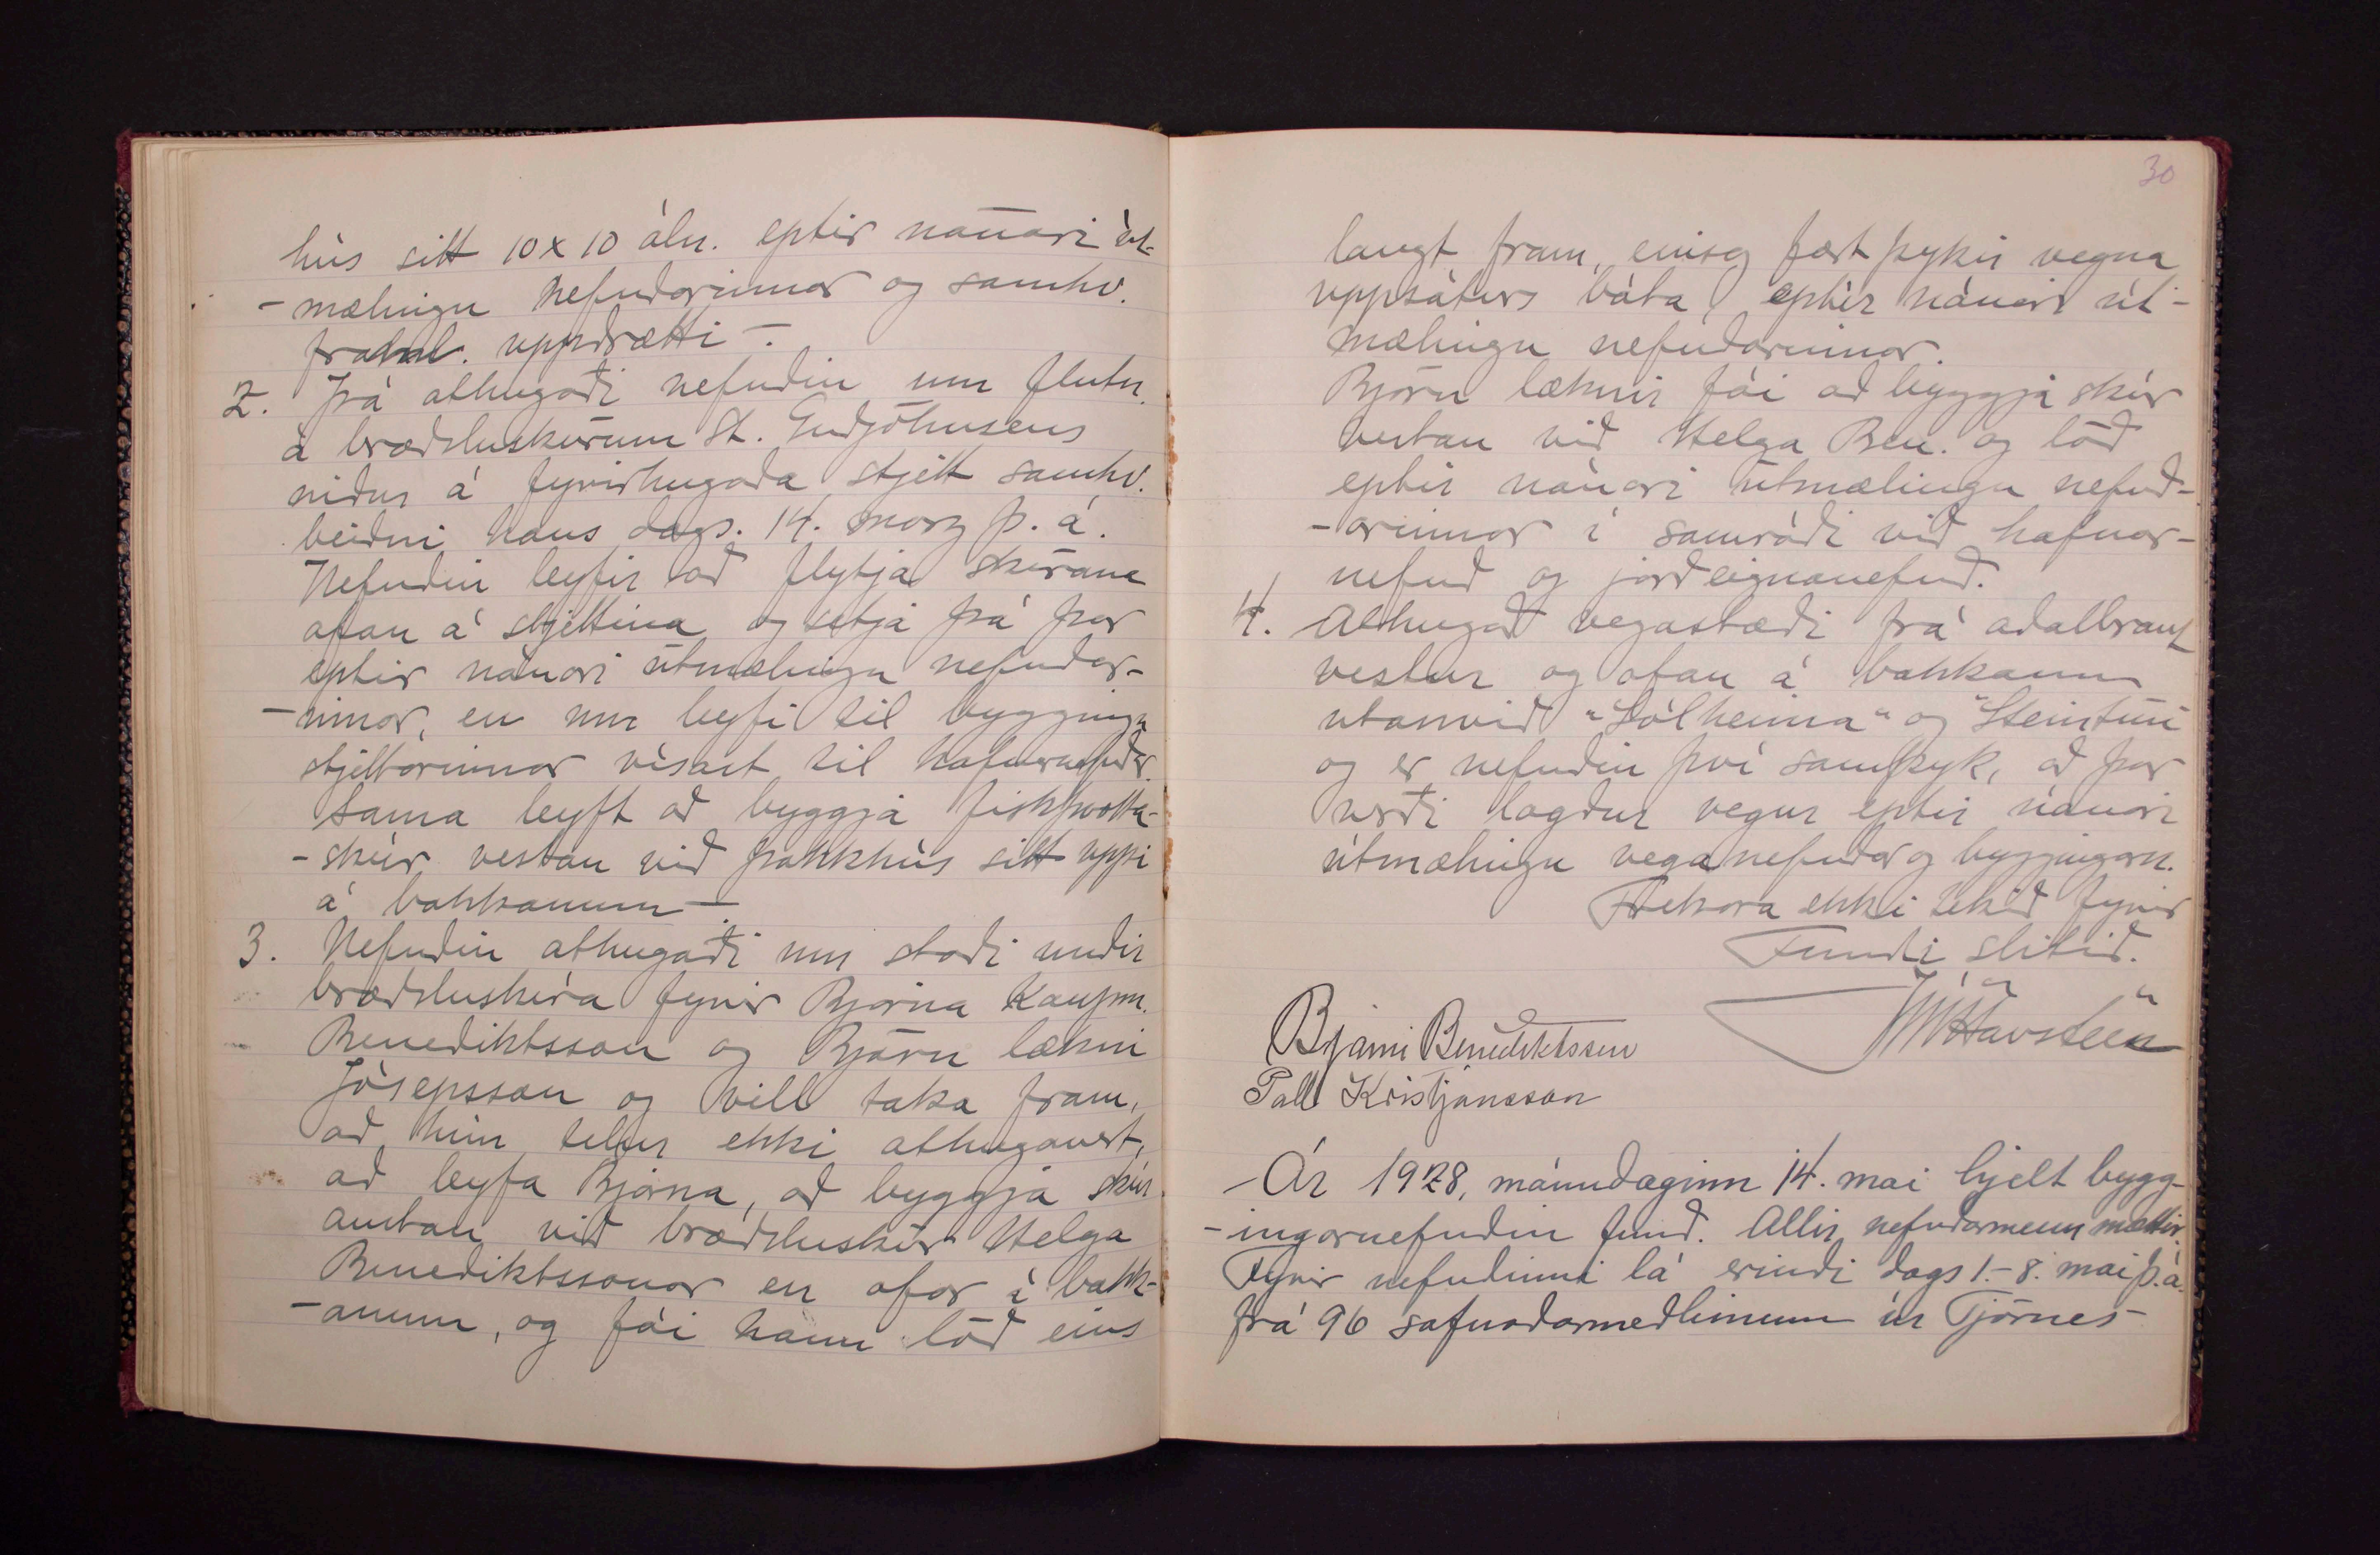 hús sitt 10x10 áln. eptir nánari út-
-mælingu nefndarinnar og samhv.
framl. uppdrætti -.
2. Þá athugaði nefndin um flutn.
á bræðsluskúrum St. Guðjohnsens
niður á fyrirhugaða stjétt samhv.
beiðni hans dags. 14. marz þ. á.
Nefndin leyfir að flytja skúrana
ofan á stjéttina og setja þá þar
eptir nánari útmælingu nefndar-
-innar, en um leyfi til byggingu
stjéttarinnar vísast til hafnarnefndar.
Sama leyft að byggja fiskþvotta-
-skúr vestan við pakkhús sitt uppi
á bakkanum -
3. Nefndin athugaði um stæði undir
bræðsluskúra fyrir Bjarna kaupm.
Benediktsson og Björn lækni
Jósepsson og vill taka fram,
að hún telur ekki athugavert,
að leyfa Bjarna, að byggja skúr
austan við bræðsluskúr Helga
Benediktssonar en ofar í bakk-
-anum, og fái hann lóð eins
30
langt fram, einsog fært þykir vegna
uppsáturs báta, eptir nánari út-
mælingu nefndarinnar.
Björn læknir fái að byggja skúr
vestan við Helga Ben. og lóð
eptir nánari útmælingu nefnd-
-arinnar í samráði við hafnar-
nefnd og jarðeignanefnd.
4. Athugað vegastæði frá aðalbraut
vestur og ofan á bakkann
utanvið "Sólheima" og "Steintún
og er nefndin því samþyk, að þar
verði lagður vegur eptir nánari
útmælingu veganefndar og byggingarn.
Frekara ekki tekið fyrir
Fundi slitið.
JúlHavsteen
Bjarni Benediktsson
Páll Kristjánsson
- Ár 1928, mánudaginn 14. mai hjelt bygg-
-ingarnefndin fund. Allir nefndarmenn mættir.
Fyrir nefndinni lá erindi dags 1.-8. mai þ.á.
frá 96 safnaðarmeðlimum úr Tjörnes-